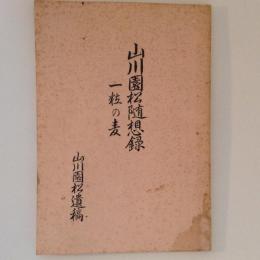 山川園松随想録
一粒の麦
山川園松遺稿